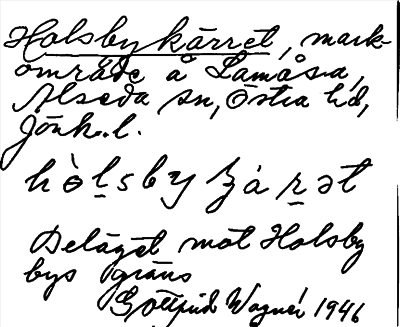 Holsbykärret, mark-
område å Lamåsa,
Alseda sn, Östra hd,
Jönk. l.
hòḻsbyʒáṟət
Beläget mot Holsby
bys gräns
Gottfrid Wagnér 1946